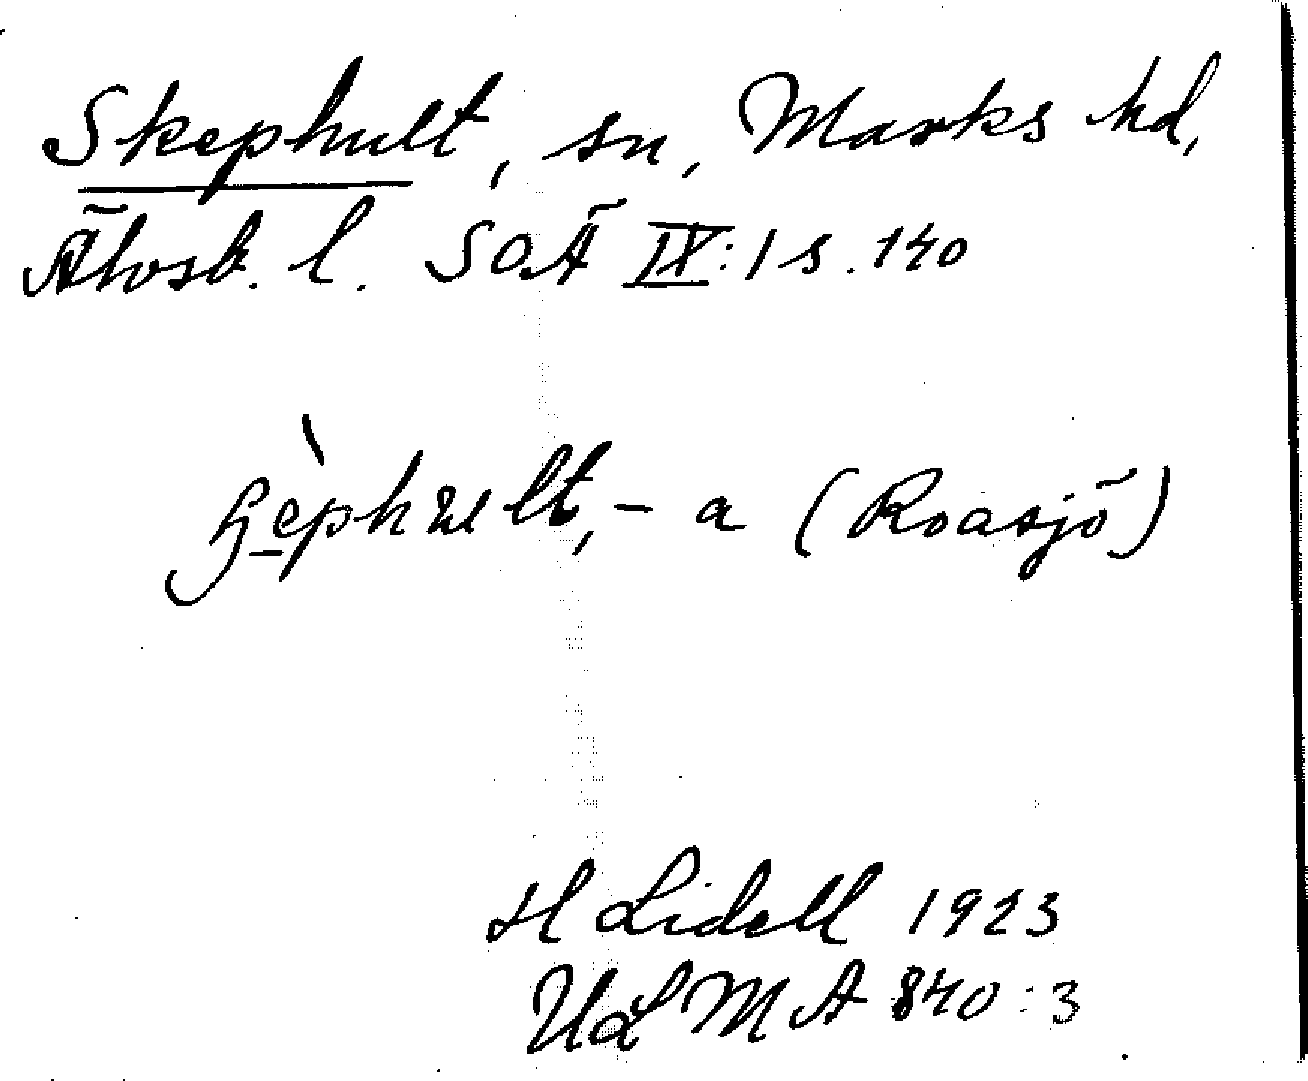 Skephult, sn, Marks hd,
Älvsb. l. SOÄ IX:1 s. 140
(Roasjö)
H Lidell 1923
ULMA 840:3